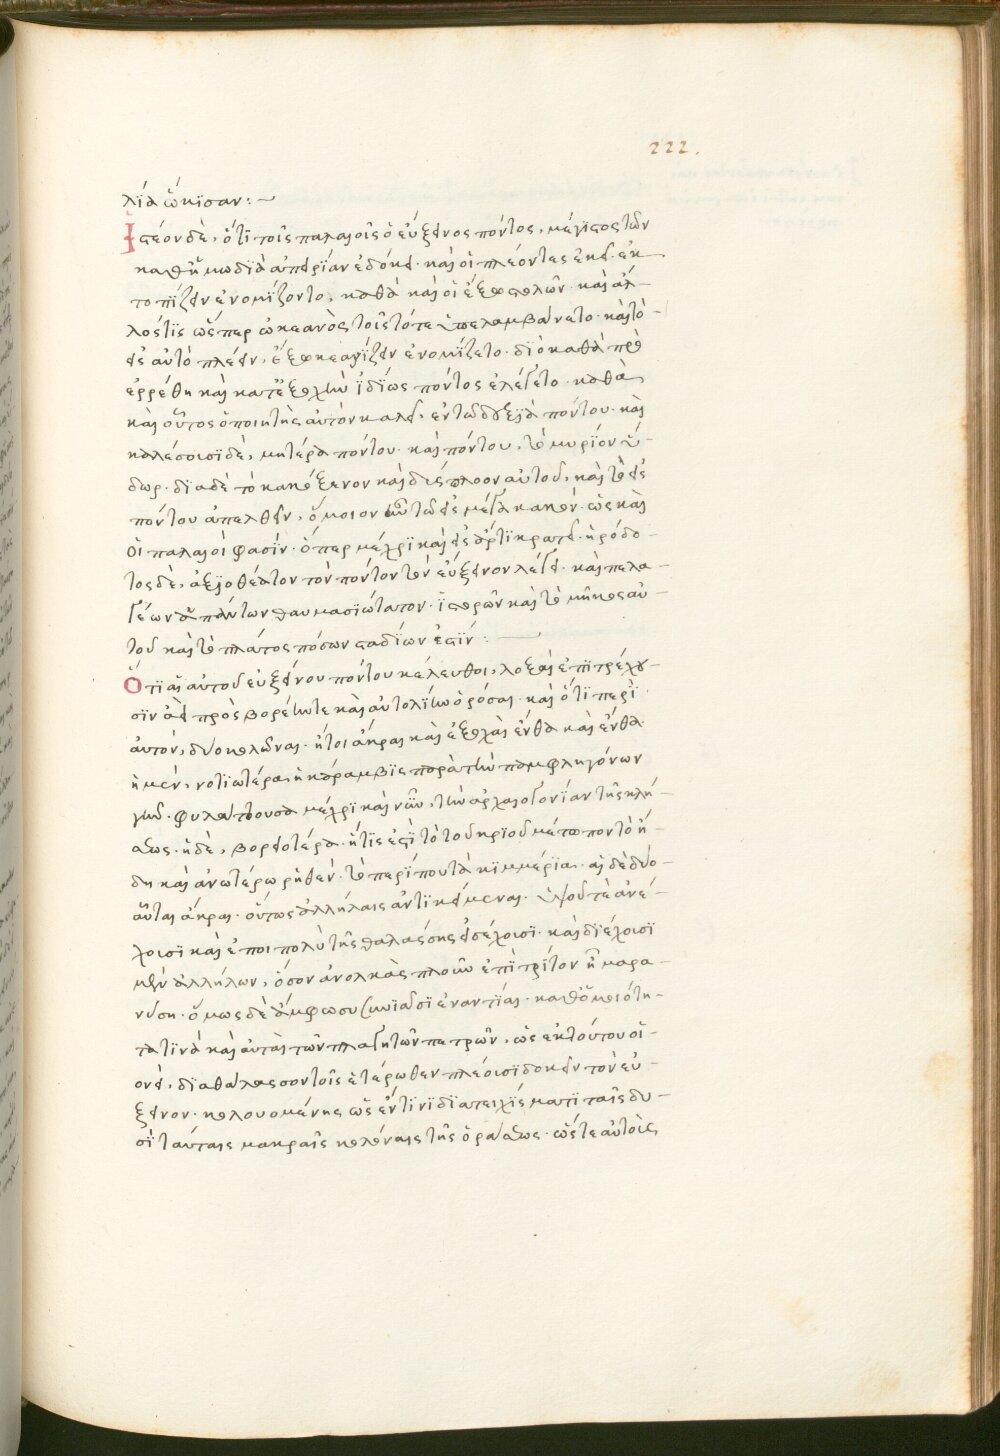 222.
λία ᾤκισαν:~
Ἰστέον δὲ, ὅτι τοῖς παλαιοῖς ὁ εὔξεινος πόντος, μέγιστος τῶν
καθ' ἡμῶν διὰ ἀπειρίαν ἐδόκει. καὶ οἱ πλέοντες ἐκεῖ. ἐκ
τοπίζειν ἐνομίζοντο, καθὰ καὶ οἱ ἔξω στηλῶν. καὶ ἄλ-
λος τις ὥσπερ ὠκεανὸς τοῖς τότε ὑπελαμβάνετο. καὶ τὸ
εἰς αὐτὸ πλεῖν, ἐξωκεανίζειν ἐνομίζετο. διὸ καθὰ προ
ερρέθη καὶ κατ' ἐξοχὴν ἰδίως πόντος ἐλέγετο. καθὰ
καὶ οὗτος ὁ ποιητὴς αὐτὸν καλεῖ, ἐν τῶ δυξεῖα πόντου. καὶ
καλέσοισι δὲ, μητέρα πόντου. καὶ πόντου, τὸ μυρίον ὕ-
δωρ. διὰ δὲ τὸ κακόξενον καὶ δύσπλοον αὐτοῦ, καὶ τὸ εἰς
πόντου ἀπελθεῖν, ὅμοιον ἦν τῶ εἰς μέγα κακόν. ὡς καὶ
οἱ παλαιοί φασίν. ὅπερ μέχρι καὶ εἰς ἄρτι κρατεῖ. ἡρόδο-
τος δὲ, ἀξιοθέατον τὸν πόντον τὸν εὔξεινον λέγει. καὶ πελα-
γέων ἁπάντων θαυμασιώτατον. ἱστορῶν καὶ τὸ μῆκος αὐ-
τοῦ καὶ τὸ πλάτος πόσων σταδίων ἐστίν:
Ὅτι αἱ αὐτοῦ εὐξείνου πόντου κέλευθοι, λοξαὶ ἐπιτρέχου-
σιν ἀεὶ πρὸς βορέην τε καὶ ἀντολίην ὁρόσαι. καὶ ὅτι περὶ
αὐτόν, δύο κολῶναι. ἤτοι ἄκραι καὶ ἐξοχαὶ ἔνθα καὶ ἔνθα
ἡ μέν, νοτιωτέρα, ἡ κάραμβις παρὰ τὴν παμφληγόνων
γῆν. φυλάττουσα μέχρι καὶ νῦν, τὴν ἀρχαιογονίαν τῆς κλή-
σεως. ἡ δὲ, βορειοτέρα. ἥτις ἐστὶ τὸ τοῦ κριοῦ μέτωπον τὸ ἤ-
δη καὶ ἀνωτέρω ῥηθέν. τὸ περί που τὰ κιμμέρια. αἱ δὲ δύο-
αὗται ἄκραι. οὕτως ἀλλήλαις ἀντικείμεναι. ὑψοῦ τε ἀνέ-
χουσι καὶ ἐπι πολὺ τῆς θαλάσσης εἰσέχουσι. καὶ διέχουσι
μὲν ἀλλήλων, ὅσον ἀν ὁλκὰς πλοῦν ἐπὶ τρίτον ἦμαρ ἀ-
νύση. ὅμως δὲ ἄμφω συμνιᾶσι ἐναντίαι. καθ' ὁμοιότη-
τα τινὰ καὶ αὐτὰς τῶν πλαγκτῶν πετρῶν, ὡς ἐκ τούτου οἷ-
ονεὶ, διθάλασσον τοῖς ἑτέρωθεν πλέουσι δοκεῖν τὸν εὔ-
ξεινον. κολουομένης ὡς ἐν τινι διατειχίσματι ταῖς δυ-
σὶ ταύταις μακραῖς κολώναις τῆς ὁράσεως. ὥστε αὐτοῖς